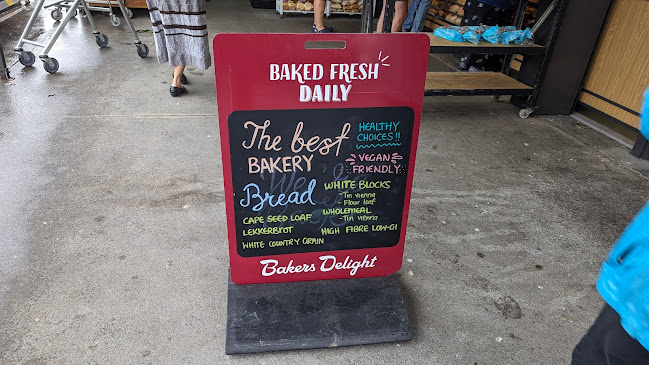 BAKED FRESH
DAILY
The best
BAKERY
HEALTHY
CHOICES!!
VEGAN
FRIENDLY
Bread
CAPE SEED LOAF
LEKKERBROT
WHITE COUNTRY GRAIN
WHITE BLOCKS
- Tin vienna
- Flour loaf
WHOLEMEAL
- Tin vienna
HIGH FIBRE LOW-GI
Bakers Delight